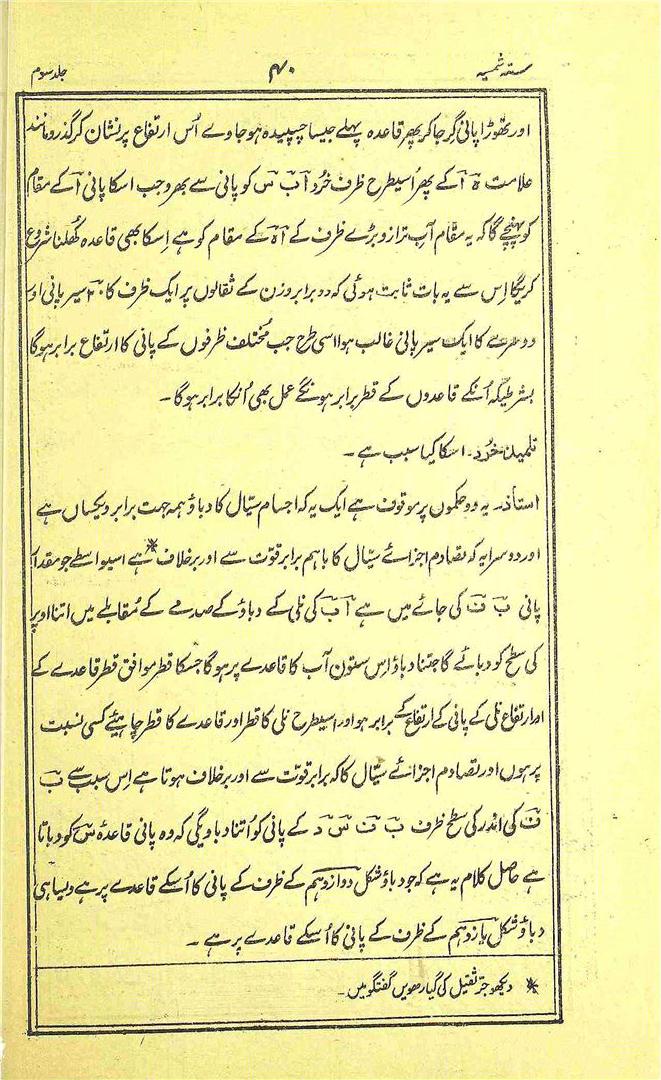 ستہ شمسیہ ۴۰ جلد سوم
اور تھوڑا پانی گر جا کر پھر قاعدہ پہلے جیسا چسپیدہ ہو جاوے اُس ارتفاع پر نشان کر گذرو مانند
علامت ہَ آ کے پھر اُسیطرح ظرف خُرد اَ بَ سَ کو پانی سے بھر و جب اسکا پانی آ کے مقام
کو پہنچے گا کہ یہ مقام آب ترازو بڑے ظرف کے آہَ کے مقام کو ہے اِسکا بھی قاعدہ کُھلنا شروع
کریگا اِس سے یہ بات ثابت ہوئی کہ دو برابر وزن کے ثقالوں پر ایک ظرف کا ۲۰ سیر پانی اور
دوسرے کا ایک سیر پانی غالب ہوا اسی طرح جب مُختلف ظرفوں کے پانی کا ارتفاع برابر ہوگا
بشرطیکہ اُنکے قاعدوں کے قطر برابر ہونگے عمل بھی اُنکا برابر ہوگا ۔
تلمیذ خُرد ۔ اسکا کیا سبب ہے ۔
استاذ ۔ یہ دو حکموں پر موقوف ہے ایک یہ کہ اجسام سیّال کا دباؤ ہمہ جہت برابر و یکساں ہے
اور دوسرا یہ کہ تصادم اجزائے سیّال کا باہم برابر قوّت سے اور برخلاف * ہے اسیواسطے جو مقدار
پانی بَ تَ کی جائے میں ہے اَ بَ کی نلی کے دباؤ کے صدمے کے مُقابلے میں اتنا اوپر
کی سطح کو دبائے گا جتنا دباؤ اِس ستون آب کا قاعدے پر ہوگا جسکا قطر موافق قطر قاعدے کے
اور ارتفاع نلی کے پانی کے ارتفاع کے برابر ہو اور اسیطرح نلی کا قطر اور قاعدے کا قطر چاہیئے کسی نسبت
پر ہوں اور تصادم اجزائے سیّال کا کہ برابر قوّت سے اور برخلاف ہوتا ہے اِس سبب سے بَ
تَ کی اندر کی سطح ظرف بَ تَ سَ دَ کے پانی کو اُتنا دباویگی کہ وہ پانی قاعدۂ سَ کو دباتا
ہے حاصل کلام یہ ہے کہ جو دباؤ شکل دوازدہم کے ظرف کے پانی کا اُسکے قاعدے پر ہے ویسا ہی
دباؤ شکل یازدہم کے ظرف کے پانی کا اُسکے قاعدے پر ہے ۔
* دیکھو جرّ ثقیل کی گیارھویں گفتگو میں ۔